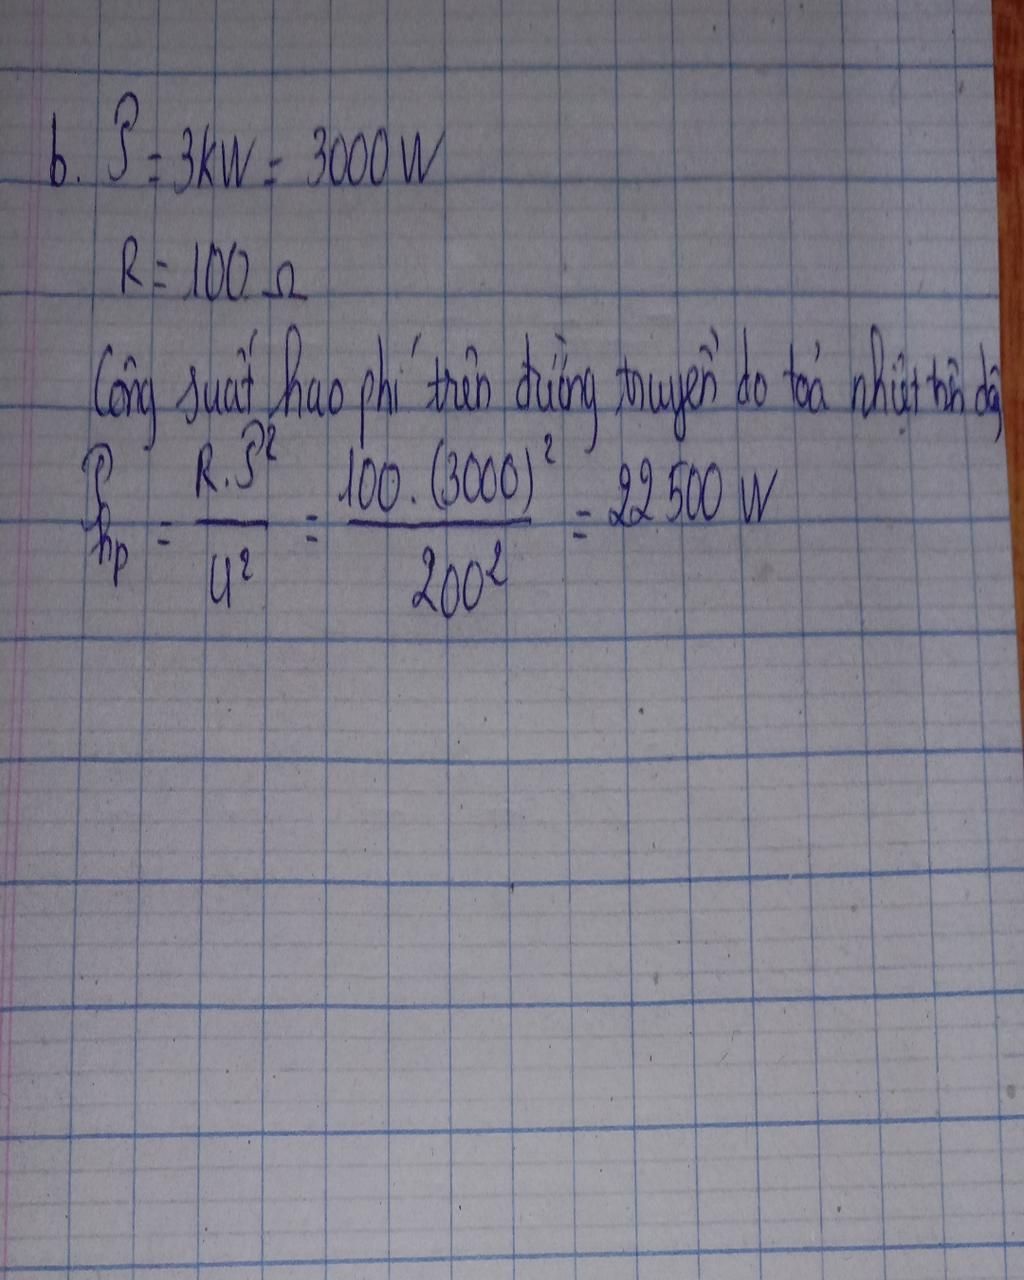 b. P = 3kW = 3000 W
R = 100 Ω
Công suất hao phí trên đường truyền do toả nhiệt trên dây
P hp = R.P² / U² = 100.(3000)² / 200² = 22 500 W